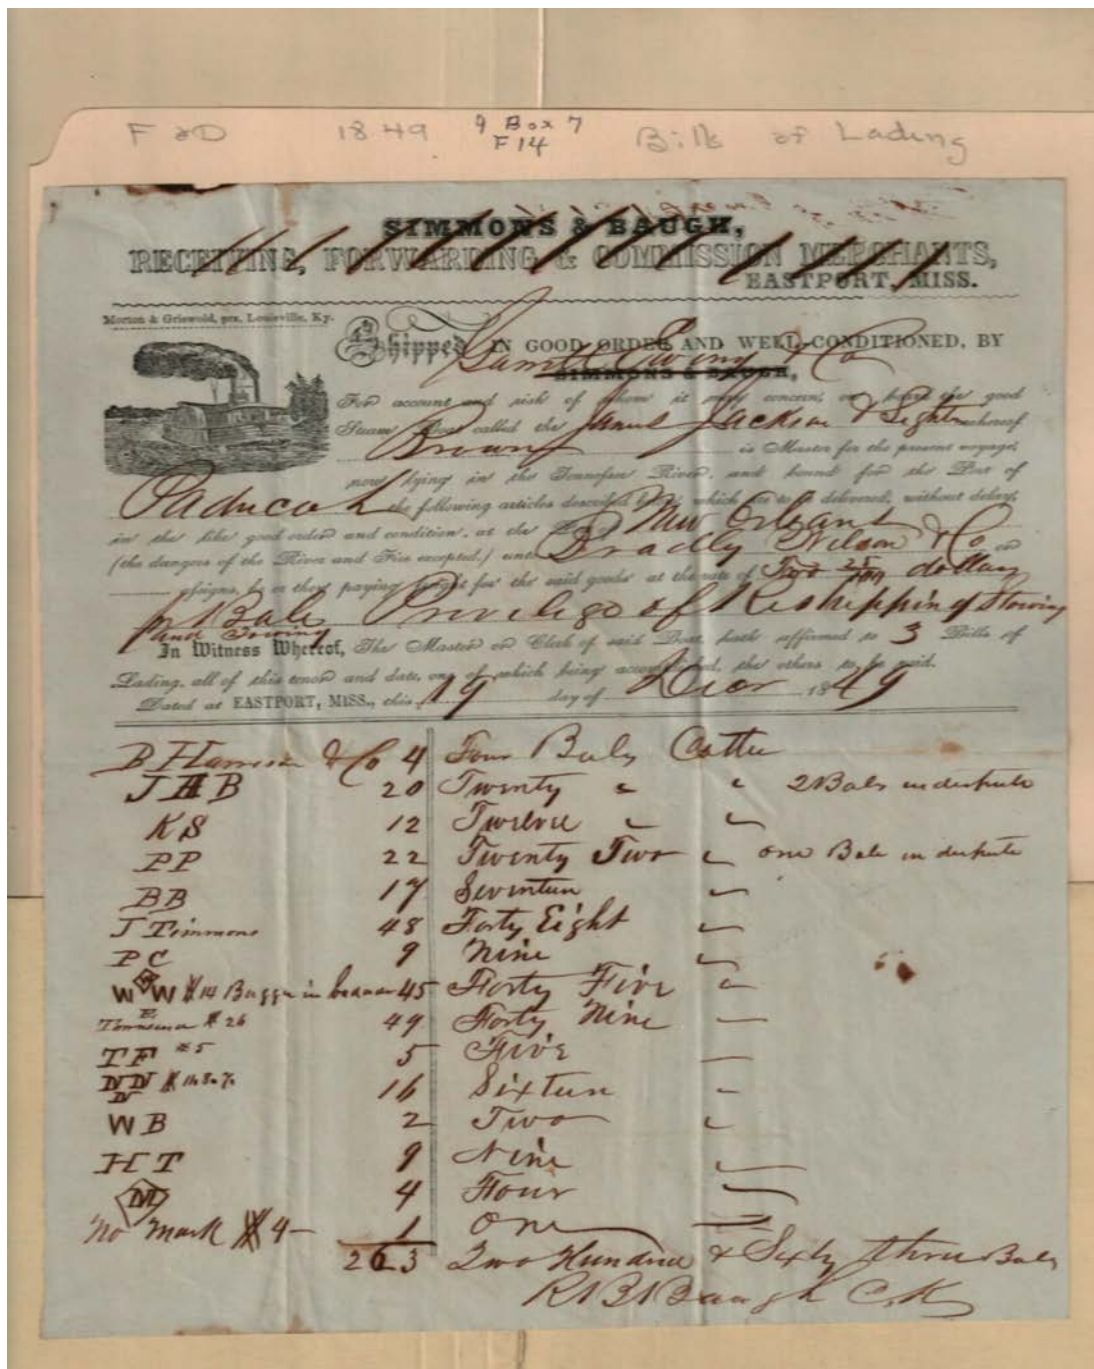 F & D 1849 9 Box 7 Bills of Lading
F 14
SIMMONS & BAUGH,
RECEIVING, FORWARDING & COMMISSION MERCHANTS,
EASTPORT, MISS.
Morton & Griswold, prs. Louisville, Ky.
Shipped IN GOOD ORDER AND WELL-CONDITIONED, BY
Garrett Ewing & Co
SIMMONS & BAUGH,
For account and risk of whom it may concern, on board the good
Steam Boat called the James Jackson & Lights whereof
Brown is Master for the present voyage,
now lying in the Tennessee River, and bound for the Port of
Paducah the following articles described below, which are to be delivered, without delay,
in the like good order and condition, at the Port of New Orleans
(the dangers of the River and Fire excepted,) unto Bradly Wilson & Co or
assigns, he or they paying freight for the said goods at the rate of Two 25/100 dollars
pr Bale Privilege of Reshipping Stowing
and Towing
In Witness Whereof, The Master or Clerk of said Boat, hath affirmed to 3 Bills of
Lading, all of this tenor and date, one of which being accomplished, the others to be void.
Dated at EASTPORT, MISS., this 19 day of Decr 1849
B Harrison & Co 4 Four Bales Cotton
JAB 20 Twenty " " 2 Bales in dispute
KS 12 Twelve " "
PP 22 Twenty Two " one Bale in dispute
BB 17 Seventeen "
J Timmons 48 Forty Eight "
PC 9 Nine "
W W #14 45 Forty Five "
#26 49 Forty Nine
TF #5 5 Five
NN 16 Sixteen
N
WB 2 Two "
HT 9 Nine
M 4 Four
No mark 4 1 One
263 Two Hundred & Sixty three Bales
R B Baugh Ck